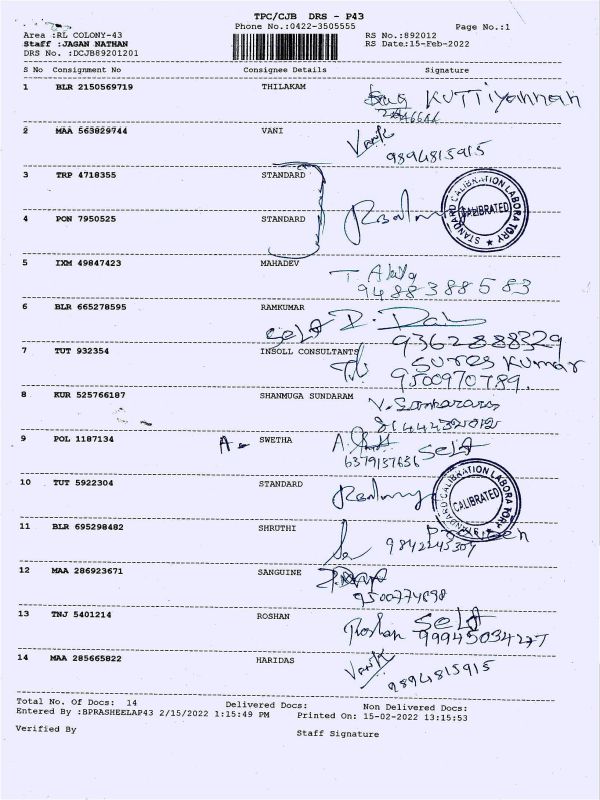 TPC/CJB DRS - P43
Phone No.:0422-3505555
Page No.:1
Area :RL COLONY-43
RS No.:892012
Staff :JAGAN NATHAN
RS Date:15-Feb-2022
DRS No. :DCJB89201201
S No Consignment No Consignee Details Signature
1 BLR 2150569719 THILAKAM KUTTiyannah
2 MAA 563829744 VANI
9894815915
3 TRP 4718355 STANDARD
STANDARD CALIBRATION LABORATORY
CALIBRATED
4 PON 7950525 STANDARD
5 IXM 49847423 MAHADEV
9488388583
6 BLR 665278595 RAMKUMAR
Self
9362888329
7 TUT 932354 INSOLL CONSULTANTS Sures Kumar
9500970789.
8 KUR 525766187 SHANMUGA SUNDARAM
9 POL 1187134 A- SWETHA Self
6379137636
10 TUT 5922304 STANDARD
STANDARD CALIBRATION LABORATORY
CALIBRATED
11 BLR 695298482 SHRUTHI
9842245304
12 MAA 286923671 SANGUINE
9500774898
13 TNJ 5401214 ROSHAN Roshan Self
99945034277
14 MAA 285665822 HARIDAS
9894815915
Total No. Of Docs: 14 Delivered Docs: Non Delivered Docs:
Entered By :BPRASHEELAP43 2/15/2022 1:15:49 PM Printed On: 15-02-2022 13:15:53
Verified By Staff Signature